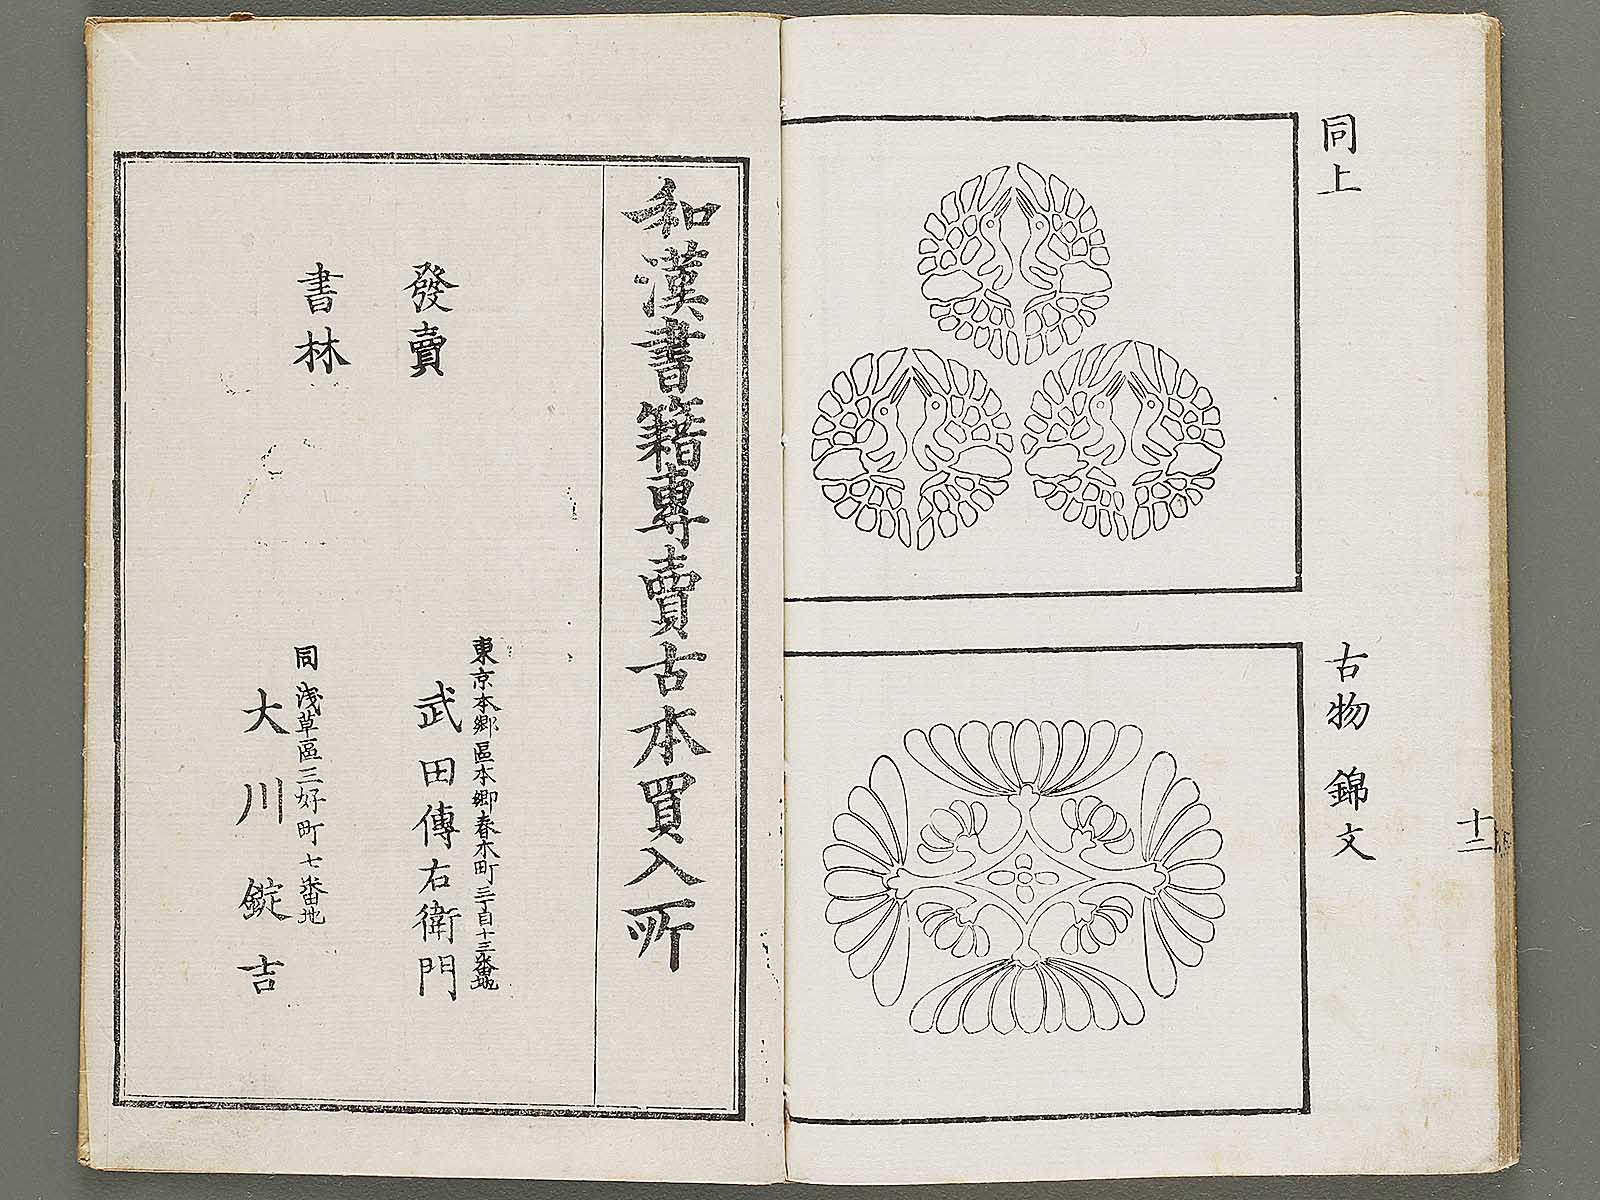 同上
古物 錦文
十二
和漢書籍專賣古本買入所
發賣
書林
東京本郷區本郷春木町三丁目十三番地
武田傳右衛門
同 浅草區三好町七番地
大川錠吉